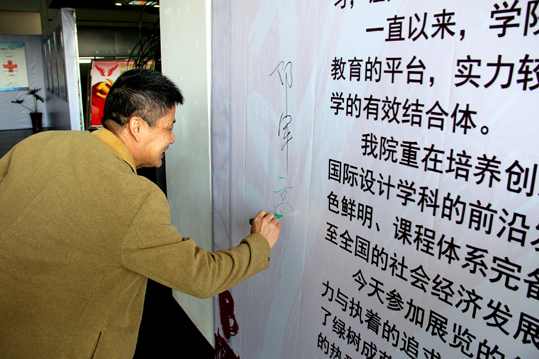 一直以来，学院
教育的平台，实力较
学的有效结合体。
我院重在培养创
国际设计学科的前沿
色鲜明、课程体系完备
至全国的社会经济发展
今天参加展览的
力与执着的追求
了绿树成
的热